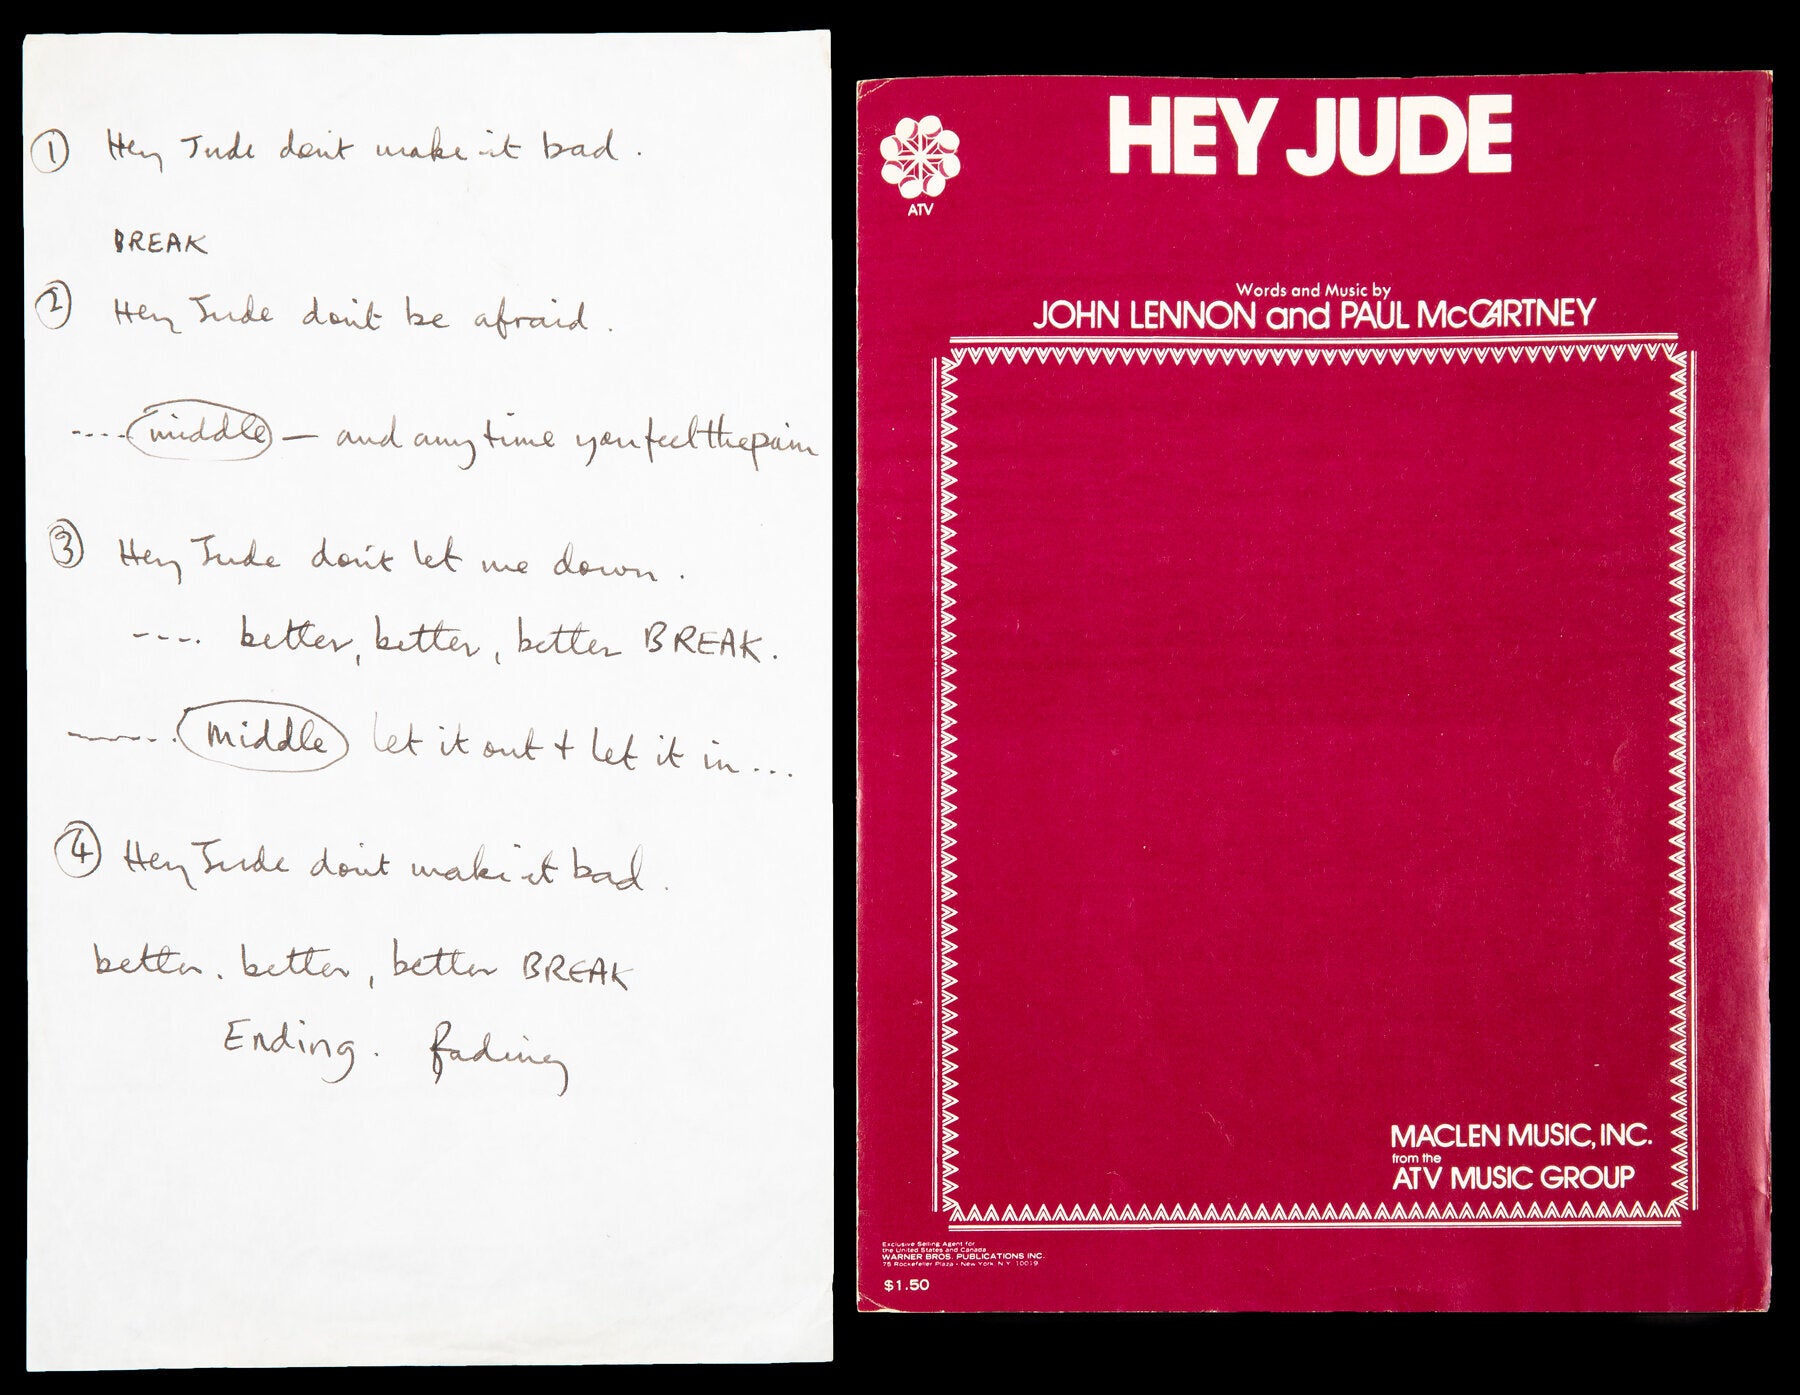 ① Hey Jude don't make it bad.
BREAK
② Hey Jude don't be afraid.
---- middle — and any time you feel the pain
③ Hey Jude don't let me down.
---- better, better, better BREAK.
------. Middle let it out + let it in...
④ Hey Jude don't make it bad.
better. better, better BREAK
Ending. fading
HEY JUDE
ATV
Words and Music by
JOHN LENNON and PAUL McCARTNEY
MACLEN MUSIC, INC.
from the
ATV MUSIC GROUP
Exclusive Selling Agent for
the United States and Canada
WARNER BROS. PUBLICATIONS INC.
75 Rockefeller Plaza • New York, N.Y. 10019
$1.50